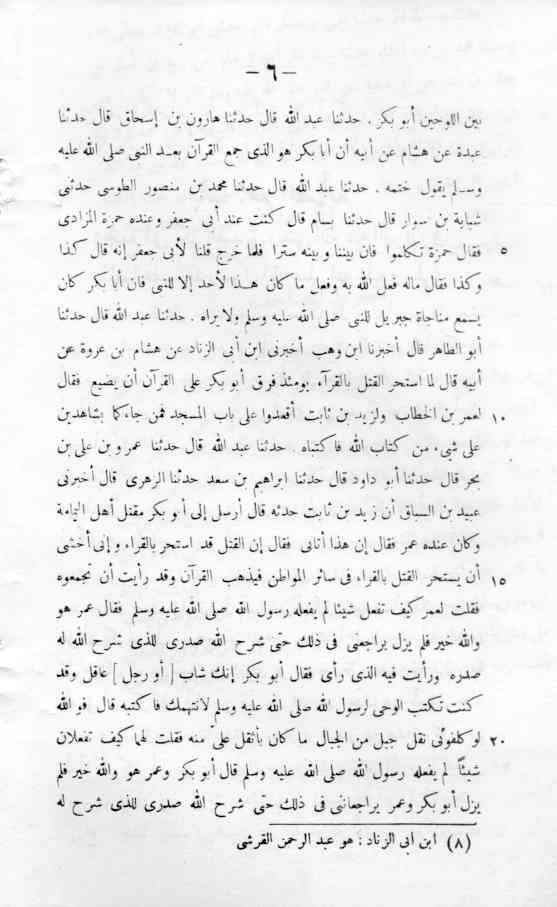 — ٦ —
بين اللوحين أبو بكر . حدثنا عبد الله قال حدثنا هارون بن إسحاق قال حدثنا
عبدة عن هشام عن أبيه أن أبا بكر هو الذى جمع القرآن بعد النبى صلى الله عليه
وسلم يقول ختمه . حدثنا عبد الله قال حدثنا محمد بن منصور الطوسى حدثنى
شبابة بن سوار قال حدثنا بسام قال كنت عند أبى جعفر وعنده حمزة الزادى
فقال حمزة تكلموا فان بيننا وبينه سترا فلما خرج قلنا لأبى جعفر إنه قال كذا ٥
وكذا فقال ماله فعل الله به وفعل ما كان هذا لأحد إلا للنبى فان أبا بكر كان
يسمع مناجاة جبريل للنبى صلى الله عليه وسلم ولا يراه . حدثنا عبد الله قال حدثنا
أبو الطاهر قال أخبرنا ابن وهب أخبرنى ابن أبى الزناد عن هشام بن عروة عن
أبيه قال لما استحر القتل بالقرآء يومئذ فرق أبو بكر على القرآن أن يضيع فقال
لعمر بن الخطاب ولزيد بن ثابت أقعدوا على باب المسجد فمن جاءكما بشاهدين ١٠
على شىء من كتاب الله فاكتباه . حدثنا عبد الله قال حدثنا عمرو بن على بن
بحر قال حدثنا أبو داود قال حدثنا ابراهيم بن سعد حدثنا الزهرى قال أخبرنى
عبيد بن السباق أن زيد بن ثابت حدثه قال أرسل إلى أبو بكر مقتل أهل اليمامة
وكان عنده عمر فقال إن هذا أتانى فقال إن القتل قد استحر بالقراء وإنى أخشى
أن يستحر القتل بالقراء فى سائر المواطن فيذهب القرآن وقد رأيت أن تجمعوه ١٥
فقلت لعمر كيف نفعل شيئا لم يفعله رسول الله صلى الله عليه وسلم فقال عمر هو
والله خير فلم يزل يراجعنى فى ذلك حتى شرح الله صدرى للذى شرح الله له
صدره ورأيت فيه الذى رأى فقال أبو بكر إنك شاب [ أو رجل ] عاقل وقد
كنت تكتب الوحى لرسول الله صلى الله عليه وسلم لانتهمك فاكتبه قال فو الله
لو كلفونى نقل جبل من الجبال ما كان بأثقل علىّ منه فقلت لهما كيف تفعلان ٢٠
شيئاً لم يفعله رسول الله صلى الله عليه وسلم قال أبو بكر وعمر هو والله خير فلم
يزل أبو بكر وعمر يراجعاننى فى ذلك حتى شرح الله صدرى للذى شرح له
(٨) ابن ابى الزناد : هو عبد الرحمن القرشى